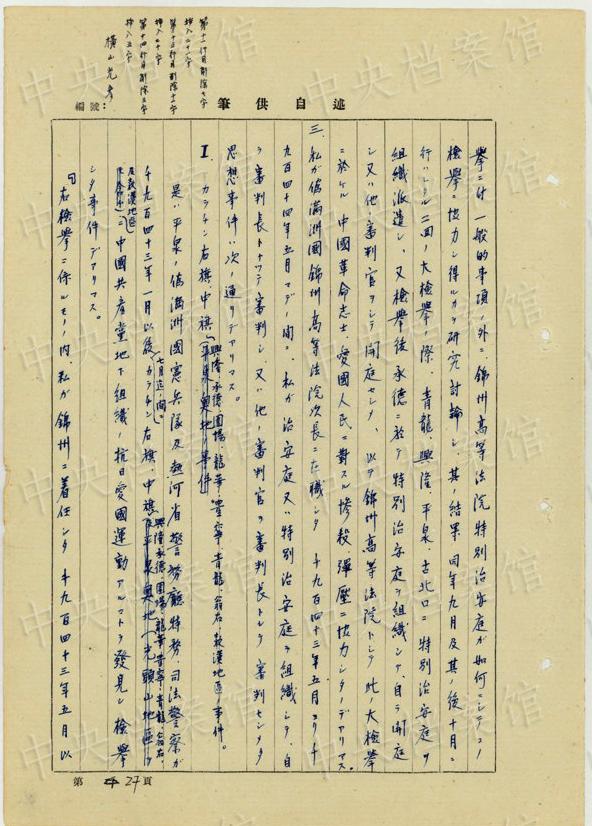 第十一行目削除七字
挿入二十一字
第十三行目削除十二字
挿入二十字
第十四行目削除五字
挿入五字
横山光彦
述自供筆
編號：
擧ニ付一般的事項ノ外ニ錦州高等法院特別治安庭ガ如何ニシテコノ
檢擧ニ協力シ得ルカヲ研究討論シ、其ノ結果同年九月及其ノ後十月ニ
行ハレタル二回ノ大檢擧ノ際、青龍、興隆、平泉、古北口ニ特別治安庭ヲ
組織派遣シ、又檢擧後承德ニ於テ特別治安庭ヲ組織シテ、自ラ開庭
シ又ハ他ノ審判官ヲシテ開庭セシメ、以テ錦州高等法院トシテ此ノ大檢擧
ニ於ケル中國革命志士、愛國人民ニ對スル慘殺、彈壓ニ協力シタノデアリマス。
三、私ガ偽滿洲國錦州高等法院次長ニ在職シタ千九百四十三年五月ヨリ千
九百四十四年五月マデノ間ニ、私ガ治安庭又ハ特別治安庭ヲ組織シタ、自
ラ審判長トナッテ審判シ、又ハ他ノ審判官ヲ審判長トシテ審判セシメタ
思想事件ハ次ノ通リデアリマス。
I カラチン右旗、中旗、興隆、承德、圍場、龍華、豐寧、青龍、翁右、敖漢地區ノ事件。
是ハ平泉ノ偽滿洲國憲兵隊及熱河省警務廳特務、司法警察ガ
千九百四十三年一月以後七月迄ノ間ニカラチン右旗、中旗、興隆、承德、圍場、龍華、豐寧、青龍、翁右、
及敖漢地區ニ中國共產黨地下組織ノ抗日愛國運動アルコトヲ發見シ檢擧
シタ事件デアリマス。
右檢擧ニ係ルモノノ内、私ガ錦州ニ着任シタ千九百四十三年五月以
第 27 頁
中央档案馆